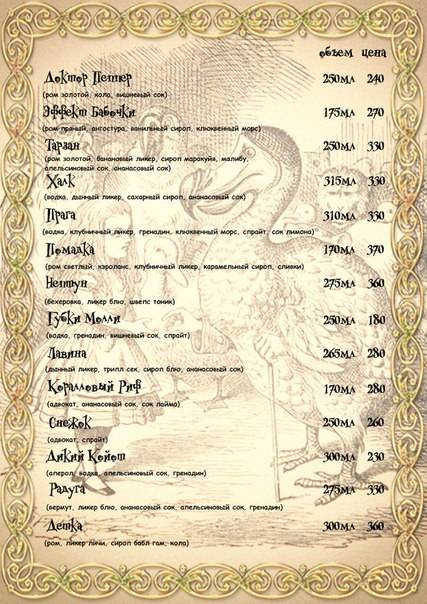 объем цена
Доктор Пеппер 250мл 240
(ром золотой, кола, вишневый сок)
Эффект Бабочки 175мл 270
(ром пряный, ангостура, ванильный сироп, клюквенный морс)
Тарзан 250мл 330
(ром золотой, банановый ликер, сироп маракуйя, малибу,
апельсиновый сок, ананасовый сок)
Халк 315мл 330
(водка, дынный ликер, сахарный сироп, ананасовый сок)
Прага 310мл 330
(водка, клубничный ликер, гренадин, клюквенный морс, спрайт, сок лимона)
Помадка 170мл 370
(ром светлый, кэроланс, клубничный ликер, карамельный сироп, сливки)
Нептун 275мл 360
(бехеровка, ликер блю, швепс тоник)
Губки Молли 250мл 180
(водка, гренадин, вишневый сок, спрайт)
Лавина 265мл 280
(дынный ликер, трипл сек, сироп блю, ананасовый сок)
Коралловый Риф 170мл 280
(адвокат, ананасовый сок, сок лайма)
Снежок 250мл 260
(адвокат, спрайт)
Дикий Койот 300мл 230
(аперол, водка, апельсиновый сок, гренадин)
Радуга 275мл 330
(вермут, ликер блю, ананасовый сок, апельсиновый сок, гренадин)
Детка 300мл 360
(ром, ликер личи, сироп бабл гам, кола)